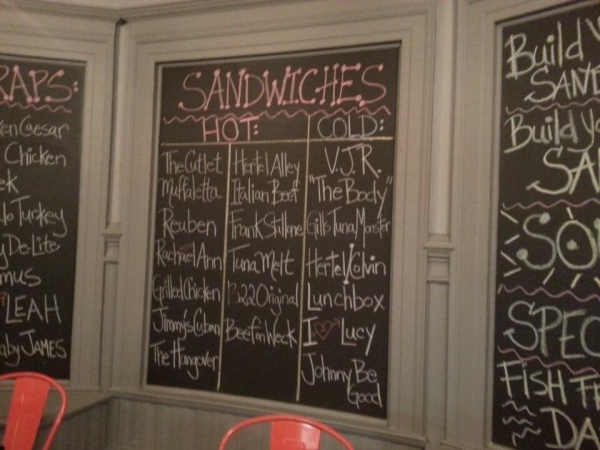 RAPS:
Caesar
Chicken
Turkey
DeLite
mus
LEAH
aby JAMES
SANDWICHES
HOT:
The Cutlet
Muffaletta
Reuben
Rachael Ann
Grilled Chicken
Jimmy's Cuban
The Hangover
Hertel Alley
Italian Beef
Frank Stallone
Tuna Melt
1322 Original
Beef n Weck
COLD:
V.J.R.
"The Body"
Gills Tuna Monster
Hertel Kolvin
Lunchbox
I ♡ Lucy
Johnny Be
Good
Build
SAN
Build Yo
SA
SO
SPEC
FISH FR
DA